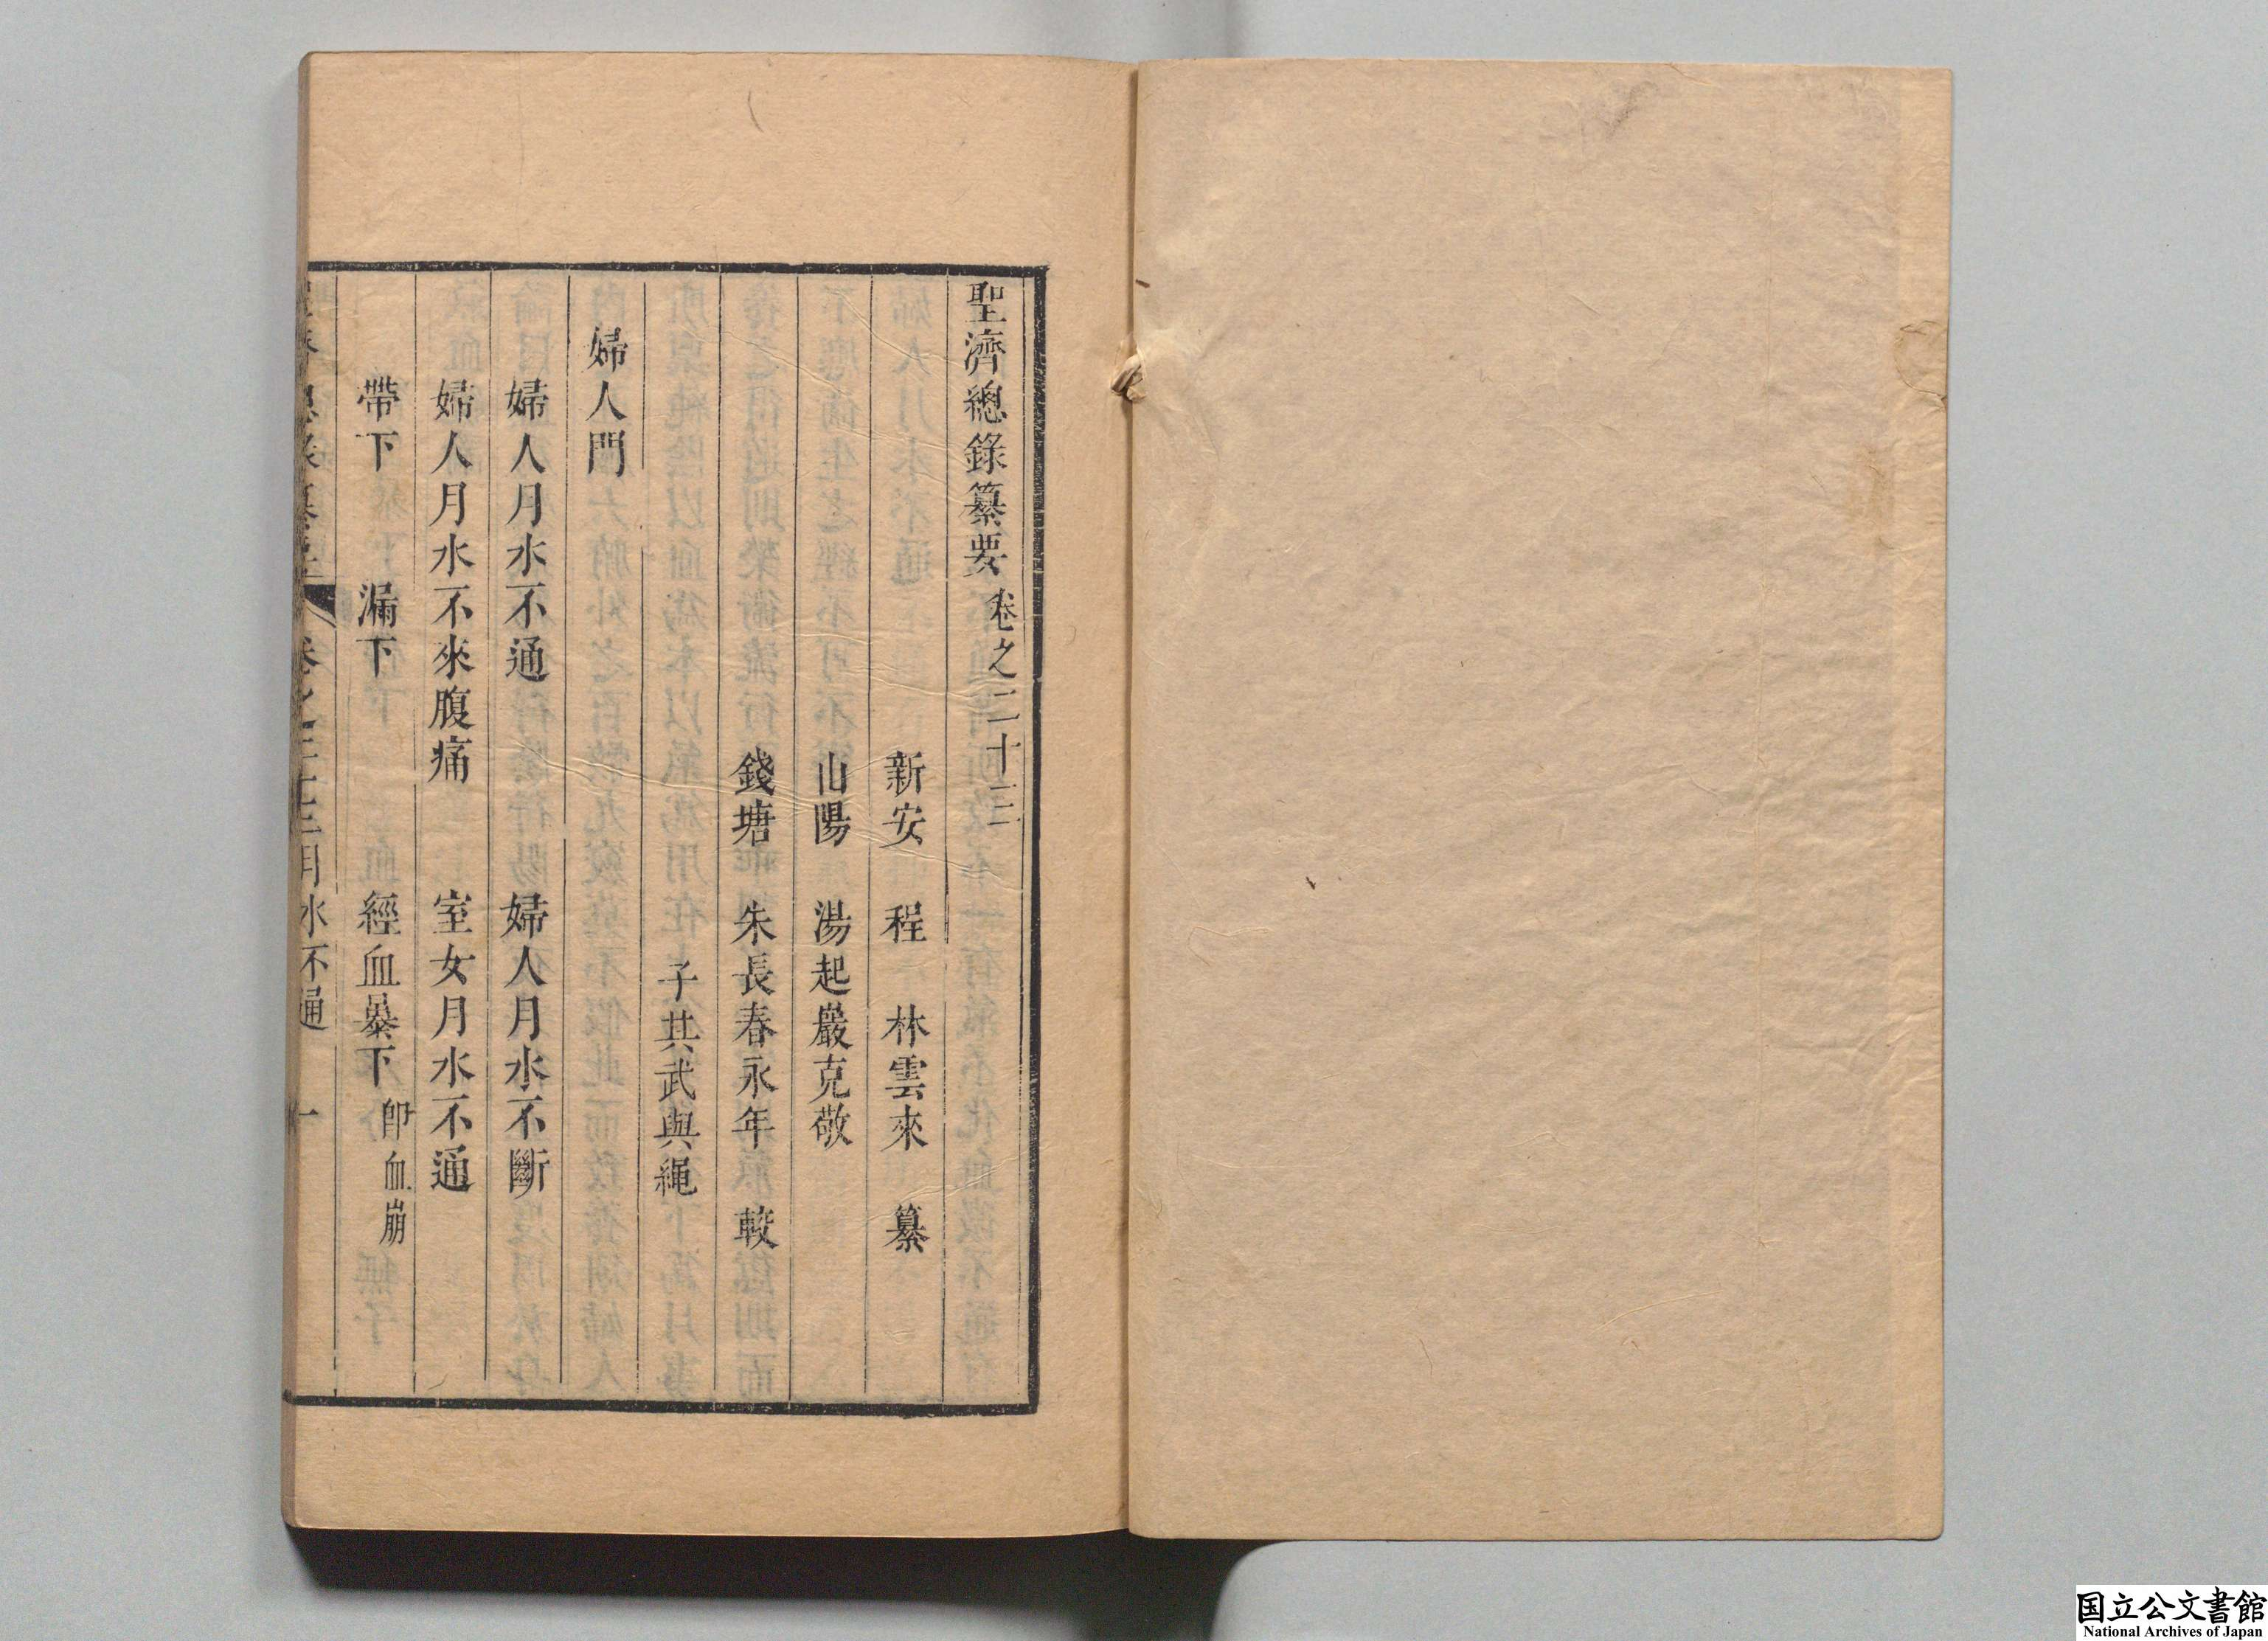 聖濟總錄纂要 卷之二十三
新安 程 林雲來 纂
山陽 湯起巖克敬
錢塘 朱長春永年 較
子其武與繩
婦人門
婦人月水不通 婦人月水不斷
婦人月水不來腹痛 室女月水不通
帶下 漏下 經血暴下 即血崩
卷之二十三月水不通 一
国立公文書館
National Archives of Japan